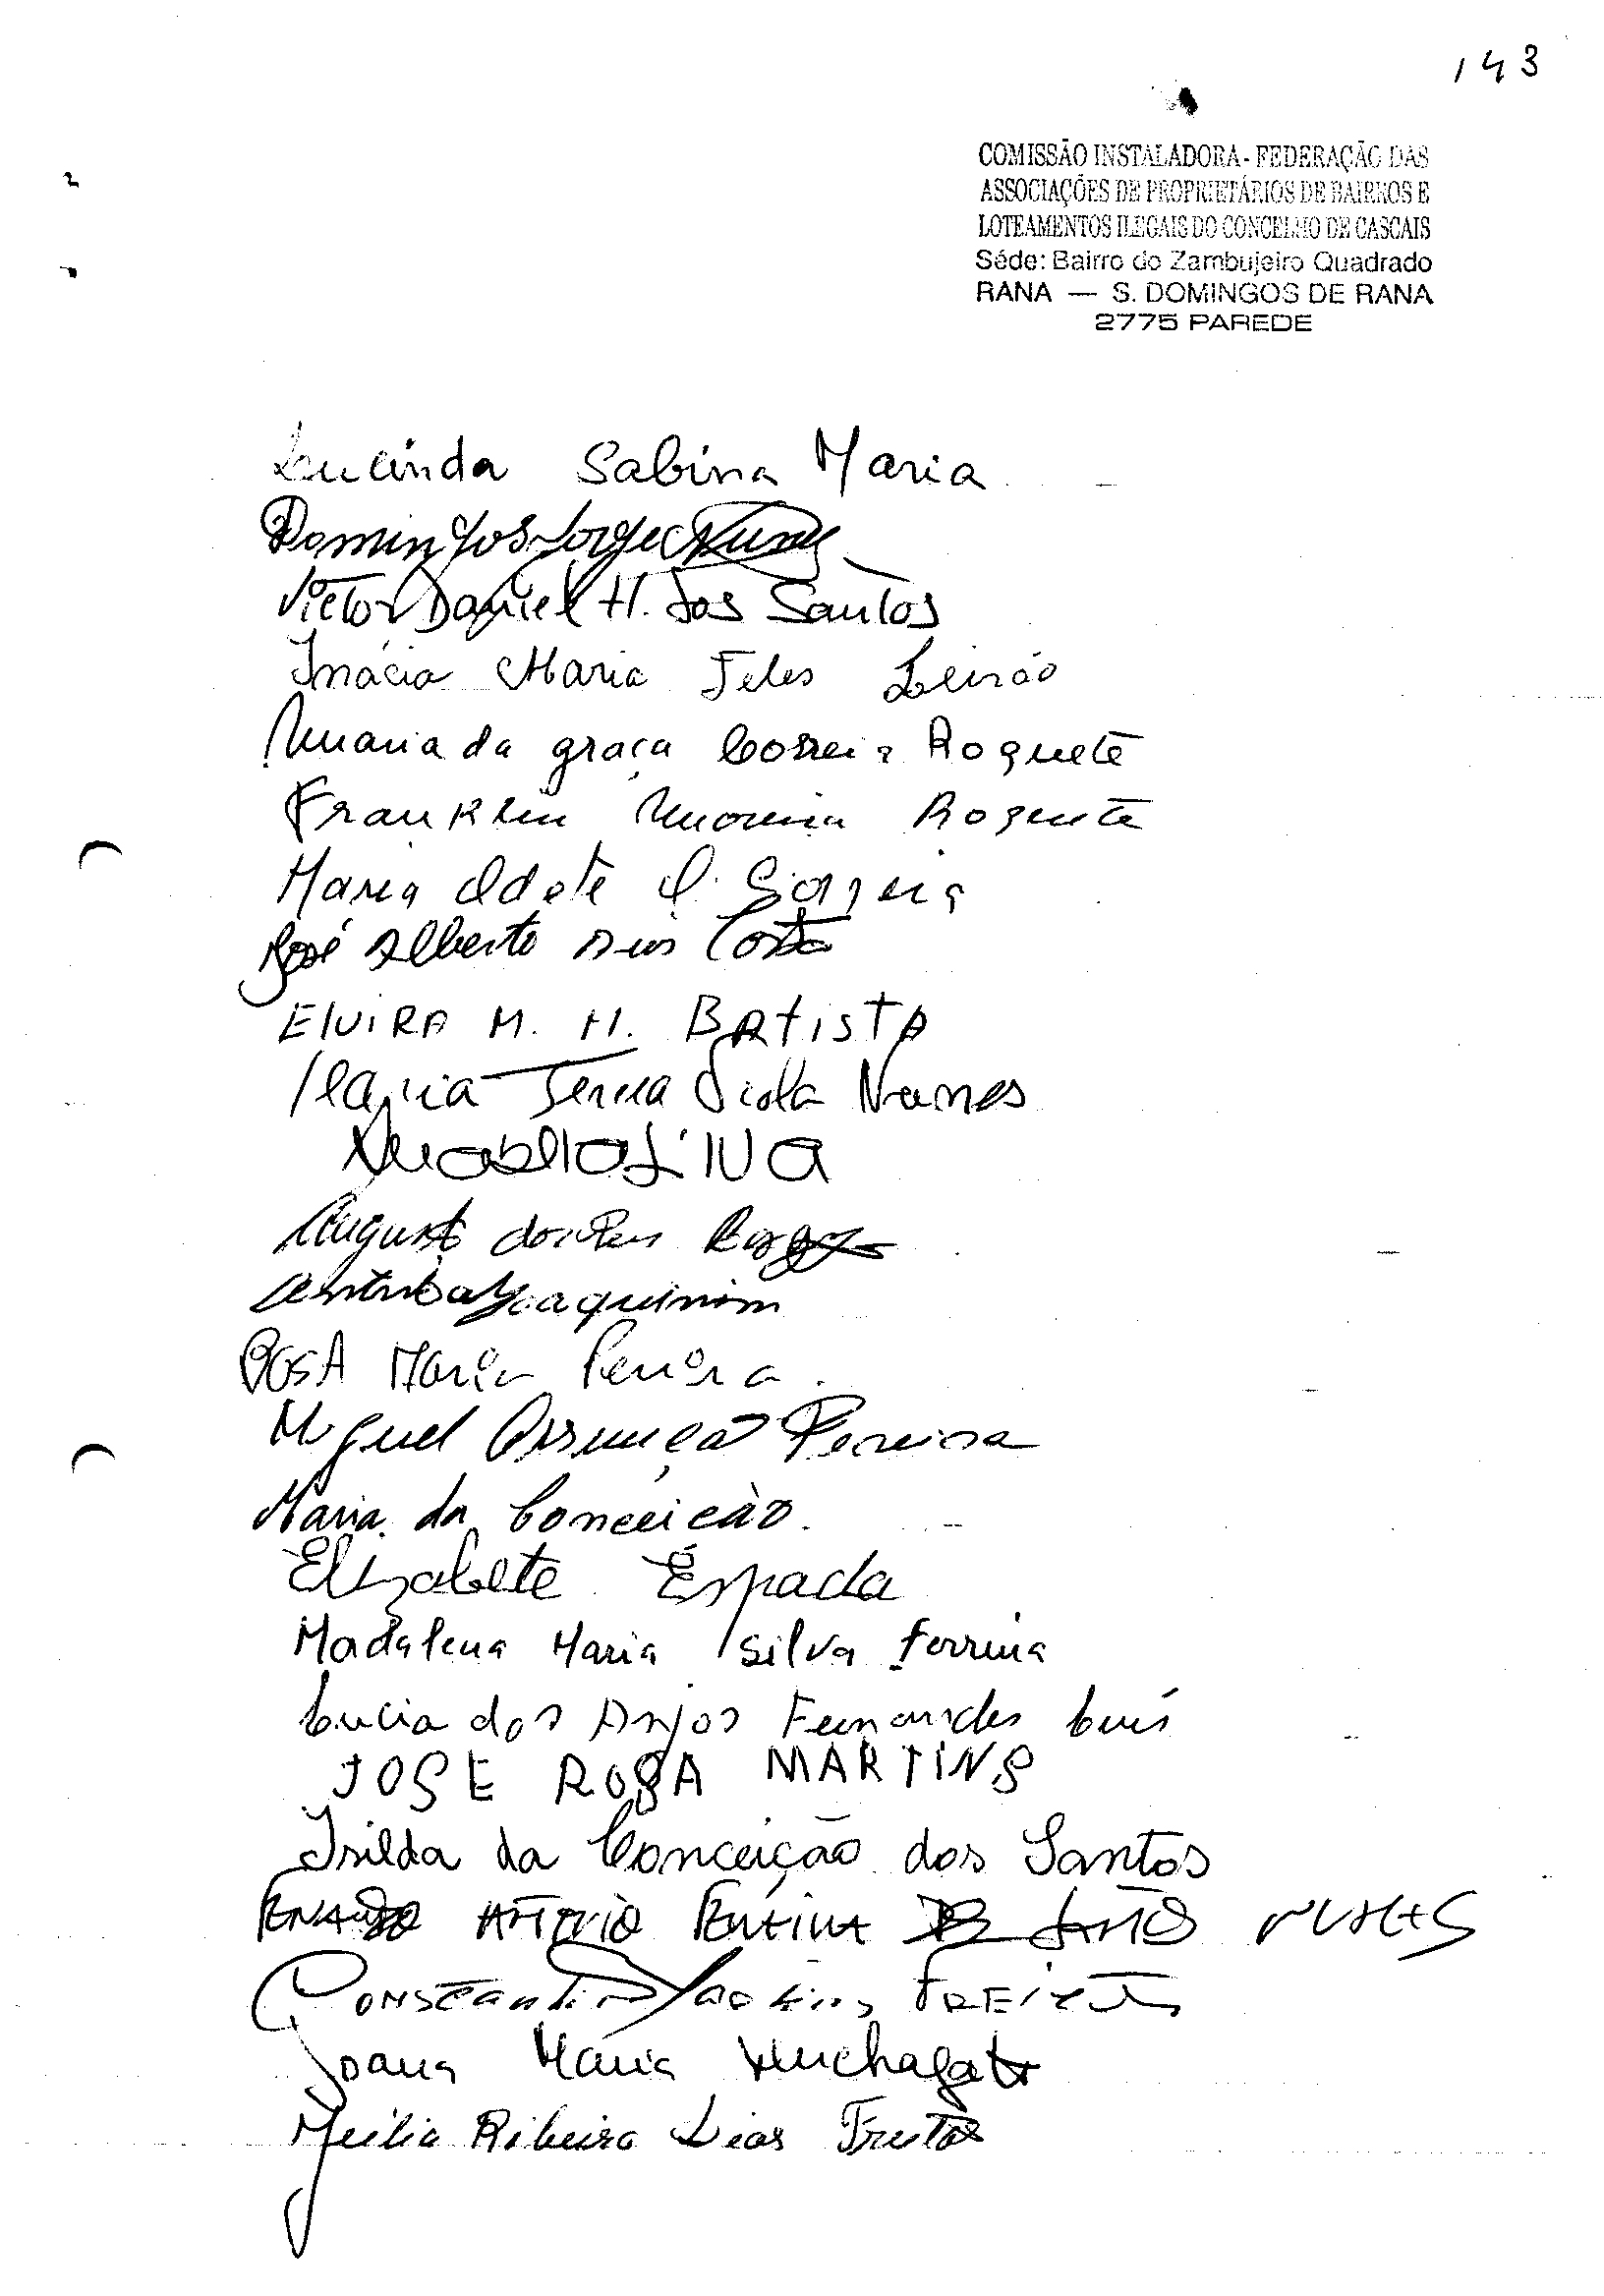 143
COMISSÃO INSTALADORA - FEDERAÇÃO DAS
ASSOCIAÇÕES DE PROPRIETÁRIOS DE BAIRROS E
LOTEAMENTOS ILEGAIS DO CONCELHO DE CASCAIS
Séde: Bairro do Zambujeiro Quadrado
RANA — S. DOMINGOS DE RANA
2775 PAREDE
Lucinda Sabina Maria
Domingos Jorge Nunes
Victor Daniel H. dos Santos
Inácia Maria Teles Leirão
Maria da graça Correia Roquete
Franklin Moreira Roquete
Maria Odete
José Alberto Costa
ElviRA M. H. BAtistA
Maria Teresa Nunes
Augusto dos
Joaquinim
ROSA Maria Pereira.
Miguel Assunção Pereira
Maria da Conceicão.
Elizabete Espada
Madalena Maria Silva Ferreira
Lucia dos Anjos Fernandes Luís
JOSE ROSA MARTINS
Isilda da Conceição dos Santos
ANTONIO NUNES
Constantino FREITAS
Joana Maria
Ribeiro Dias Freitas